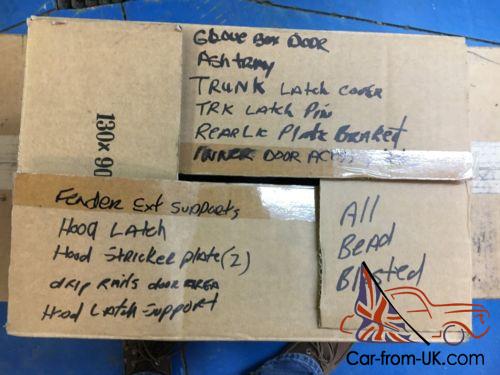 Glove Box Door
Ashtray
TRUNK LATCH COVER
TRK LATCH Pin
REAR Lic Plate BRAKET
INNER DOOR
130x90
Fender Ext Supports
Hood Latch
Hood Stricker plate (2)
drip rails door AREA
Hood Latch Support
All
BEAD
Blasted
Car-from-UK.com